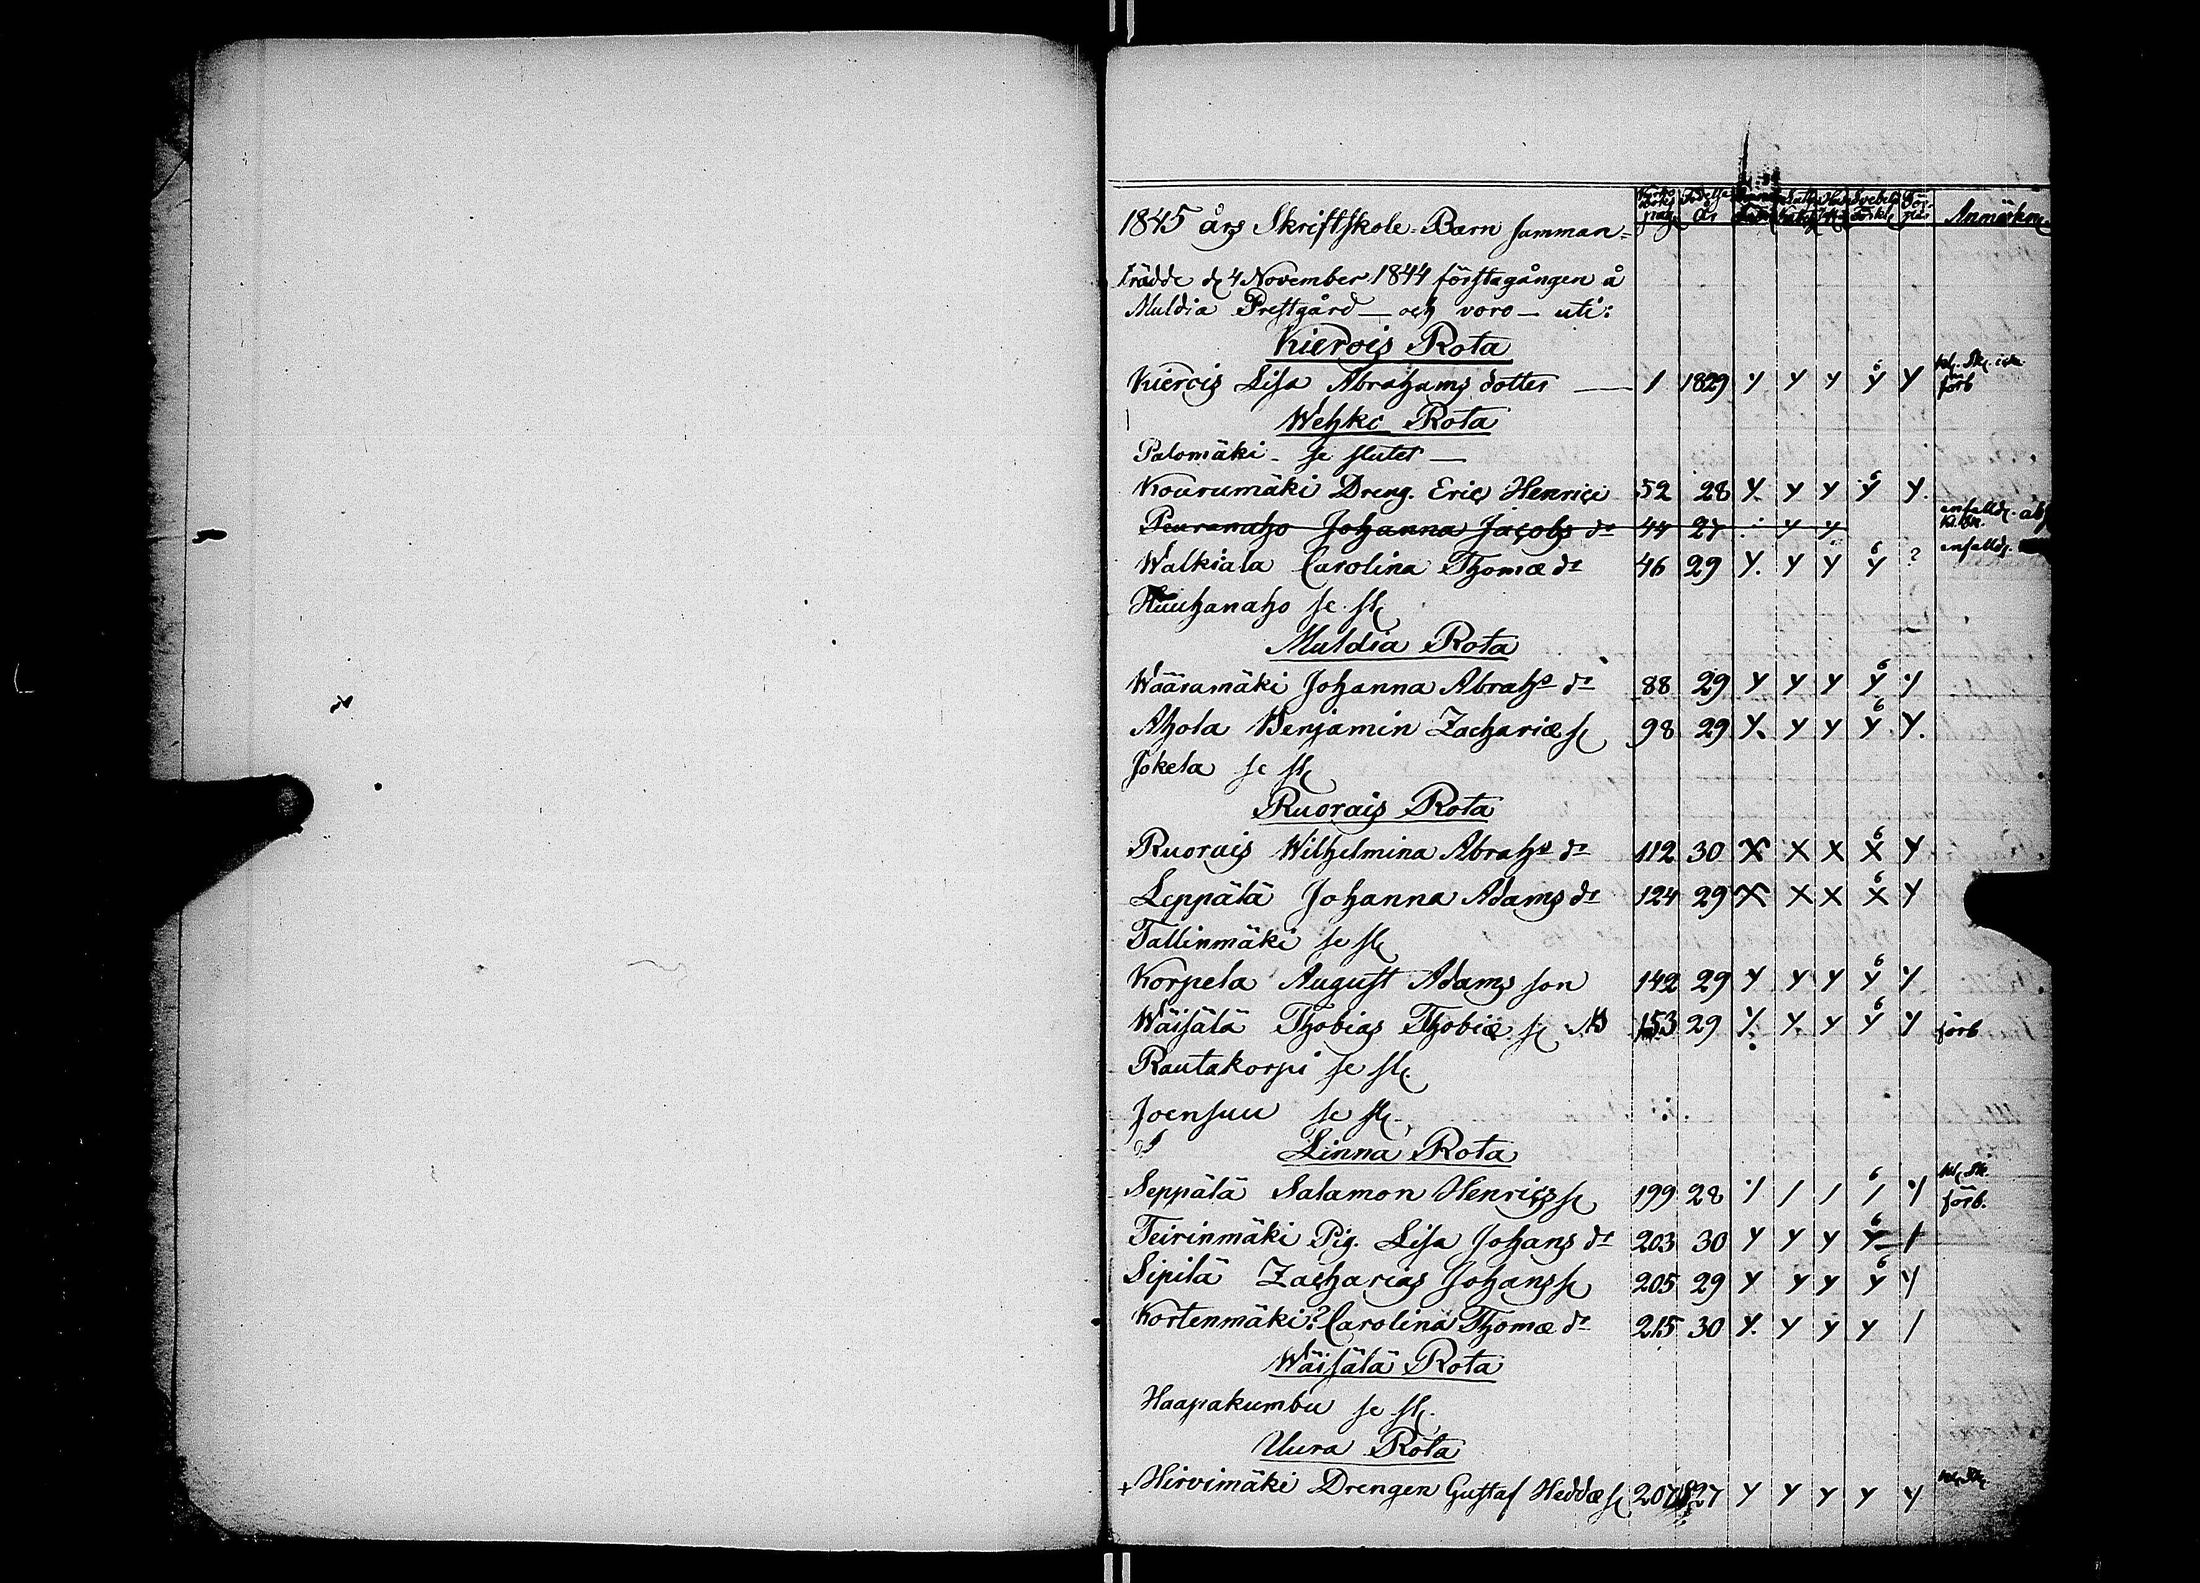 Kyrko boks pag. Födelse år Svebelii Förkl. Anmärkn
1845 års Skriftskole-Barn samman-
trädde d 4 November 1844 förstagången å
Muldia Prestgård — och voro — uti:
Kierois Rota
Kierois Lisa Abrahams dotter — 1 1829 y y y y 6 y förb
Wehki Rota
Palomäki - se slutet —
Kourumäki Dreng. Eric Henrici 52 28 y. y y y 6 y.
Peuranaho Johanna Jacobs dr 44 27 y y enfalld.
Walkiala Carolina Thomæ dr 46 29 y. y y y 6 ? enfalld.
Huuhanaho se sl
Muldia Rota
Wääramäki Johanna Abrahs dr 88 29 y y y y 6 y
Ahola Benjamin Zachariæ s 98 29 y. y y y 6 y.
Jokela se sl
Ruorais Rota
Ruorais Wilhelmina Abrahs dr 112 30 X X X X 6 y
Leppälä Johanna Adams dr 124 29 X X X X 6 y
Tallinmäki se sl
Korpela August Adams son 142 29 y y y y 6 y
Wäisälä Thobias Thobiæ s 153 29 y. y. y y 6 y förb
Rautakorpi se sl.
Joensuu se sl.
Linna Rota
Seppälä Salamon Henrics s 199 28 / / / / 6 / förb.
Teirinmäki Pig. Lisa Johans dr 203 30 y y y y 6 /
Sipilä Zacharias Johans s 205 29 y y y y 6 y
Kortenmäki? Carolina Thomæ dr 215 30 y. y y y /
Wäisälä Rota
Haapakumbu se sl.
Uura Rota
Hirvimäki Drengen Gustaf Heddæ s 207 1827 y y y y y